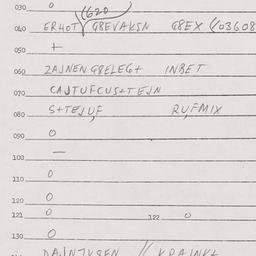 030 0 (620
040 ERHOT G8EVAKSN G8EX (/03608
050 +
060 ZAJNEN G8ELEG+ INBET
070 CAJTUFCUS+TEJN
080 S+TEJUF RUFMIX
090 0
100 —
110 0
120 0
121 0 122 0
130 0